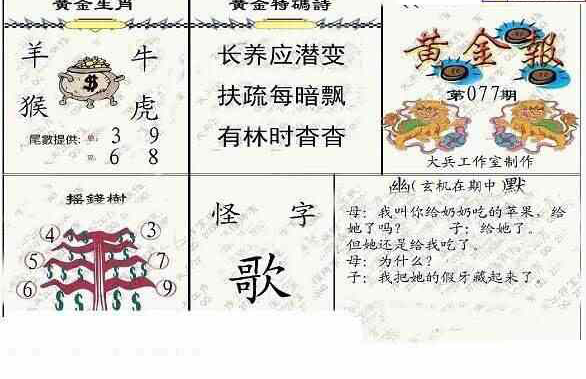 黄金生肖
羊 牛
猴 虎
$
尾數提供: 单: 3 9
6 8
黄金特碼詩
长养应潜变
扶疏每暗飘
有林时杳杳
黄金報
第077期
大兵工作室制作
摇錢樹
4 3
5 7
6 9
怪 字
歌
幽(玄机在期中)默
母: 我叫你给奶奶吃的苹果, 给
她了吗? 子: 给她了。
但她还是给我吃了。
母: 为什么?
子: 我把她的假牙藏起来了。